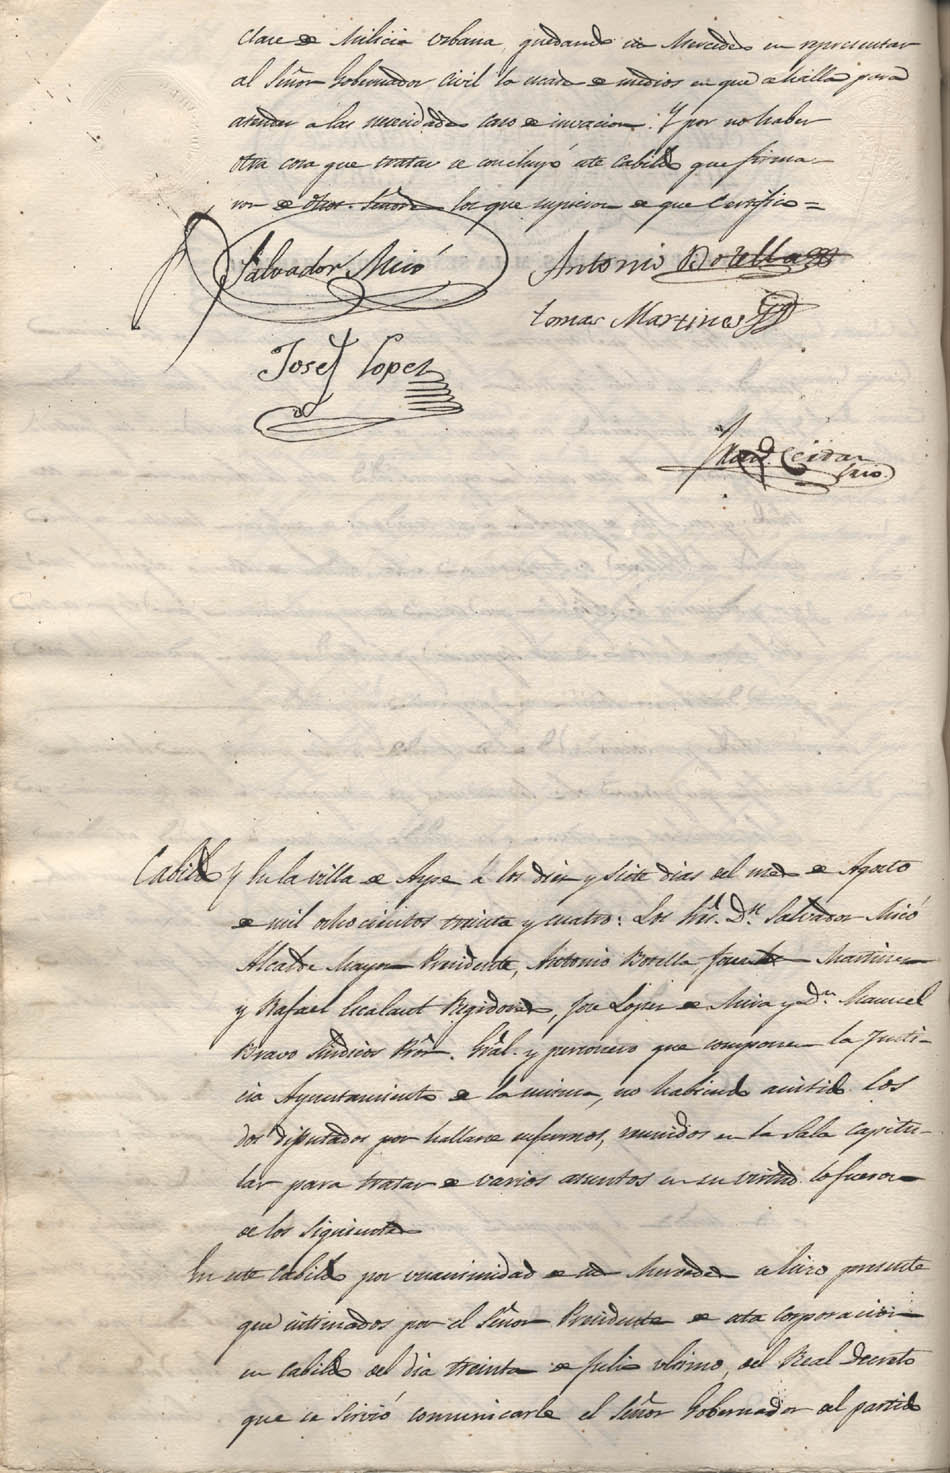 clase de Milicia Urbana, quedando su Mercedes en representar
al Señor Gobernador Civil la escasez de medios en que se halla para
atender a las necesidades caso de invacion. Y por no haber
otra cosa que tratar se concluyó este Cabildo que firma-
ron de otros Señores los que supieron de que Certifico =
Salvador Miró Antonio Botella
tomas Martines
Josef Lopez
Cabildo / En la villa de Aspe á los diez y siete dias del mes de Agosto
de mil ochocientos treinta y cuatro: Los Sres. Dn. Salvador Miró
Alcalde Mayor Presidente, Antonio Botella, Martinez
y Rafael Regidores, José Lopez de Mira y Dn. Manuel
Bravo Sindicos Prór. Grâl. y personero que componen la Justi-
cia Ayuntamiento de la misma, no habiendo asistido los
dos diputados por hallarse enfermos, reunidos en la Sala Capitu-
lar para tratar de varios asuntos en su virtud lo fueron
de los siguientes
En este Cabildo por unanimidad de sus Mercedes se hizo presente
que intimados por el Señor Presidente de esta Corporacion
en Cabildo del dia treinta de Julio ultimo, del Real Decreto
que se sirvió comunicarle el Señor Gobernador del partido